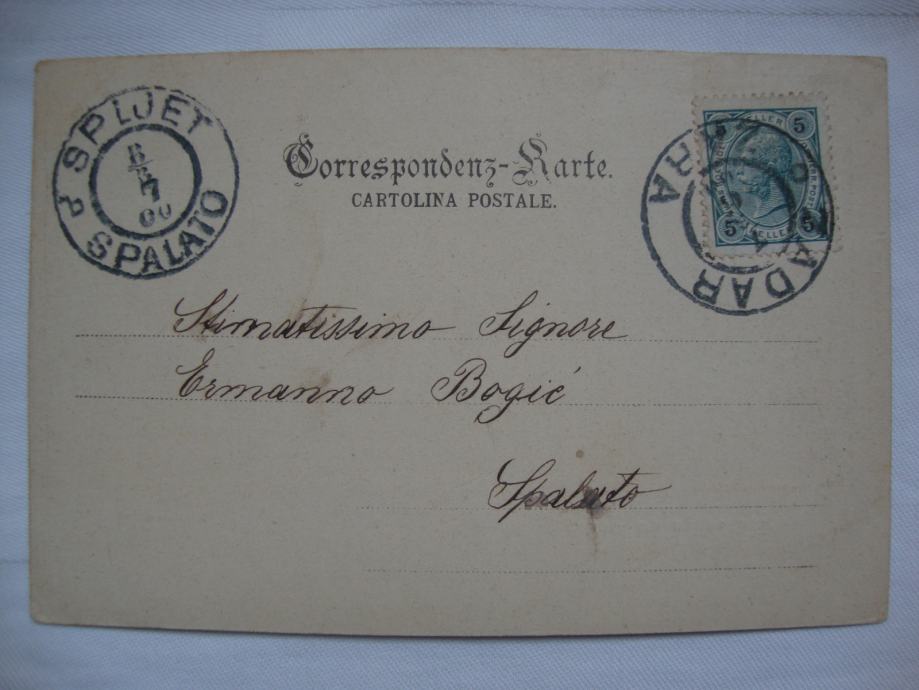 SPLJET
SPALATO
6
7
00
Correspondenz-Karte.
CARTOLINA POSTALE.
5 HELLER 5
5 HELLER 5
ZARA
ZADAR
Stimatissimo Signore
Ermanno Bogić
Spalato